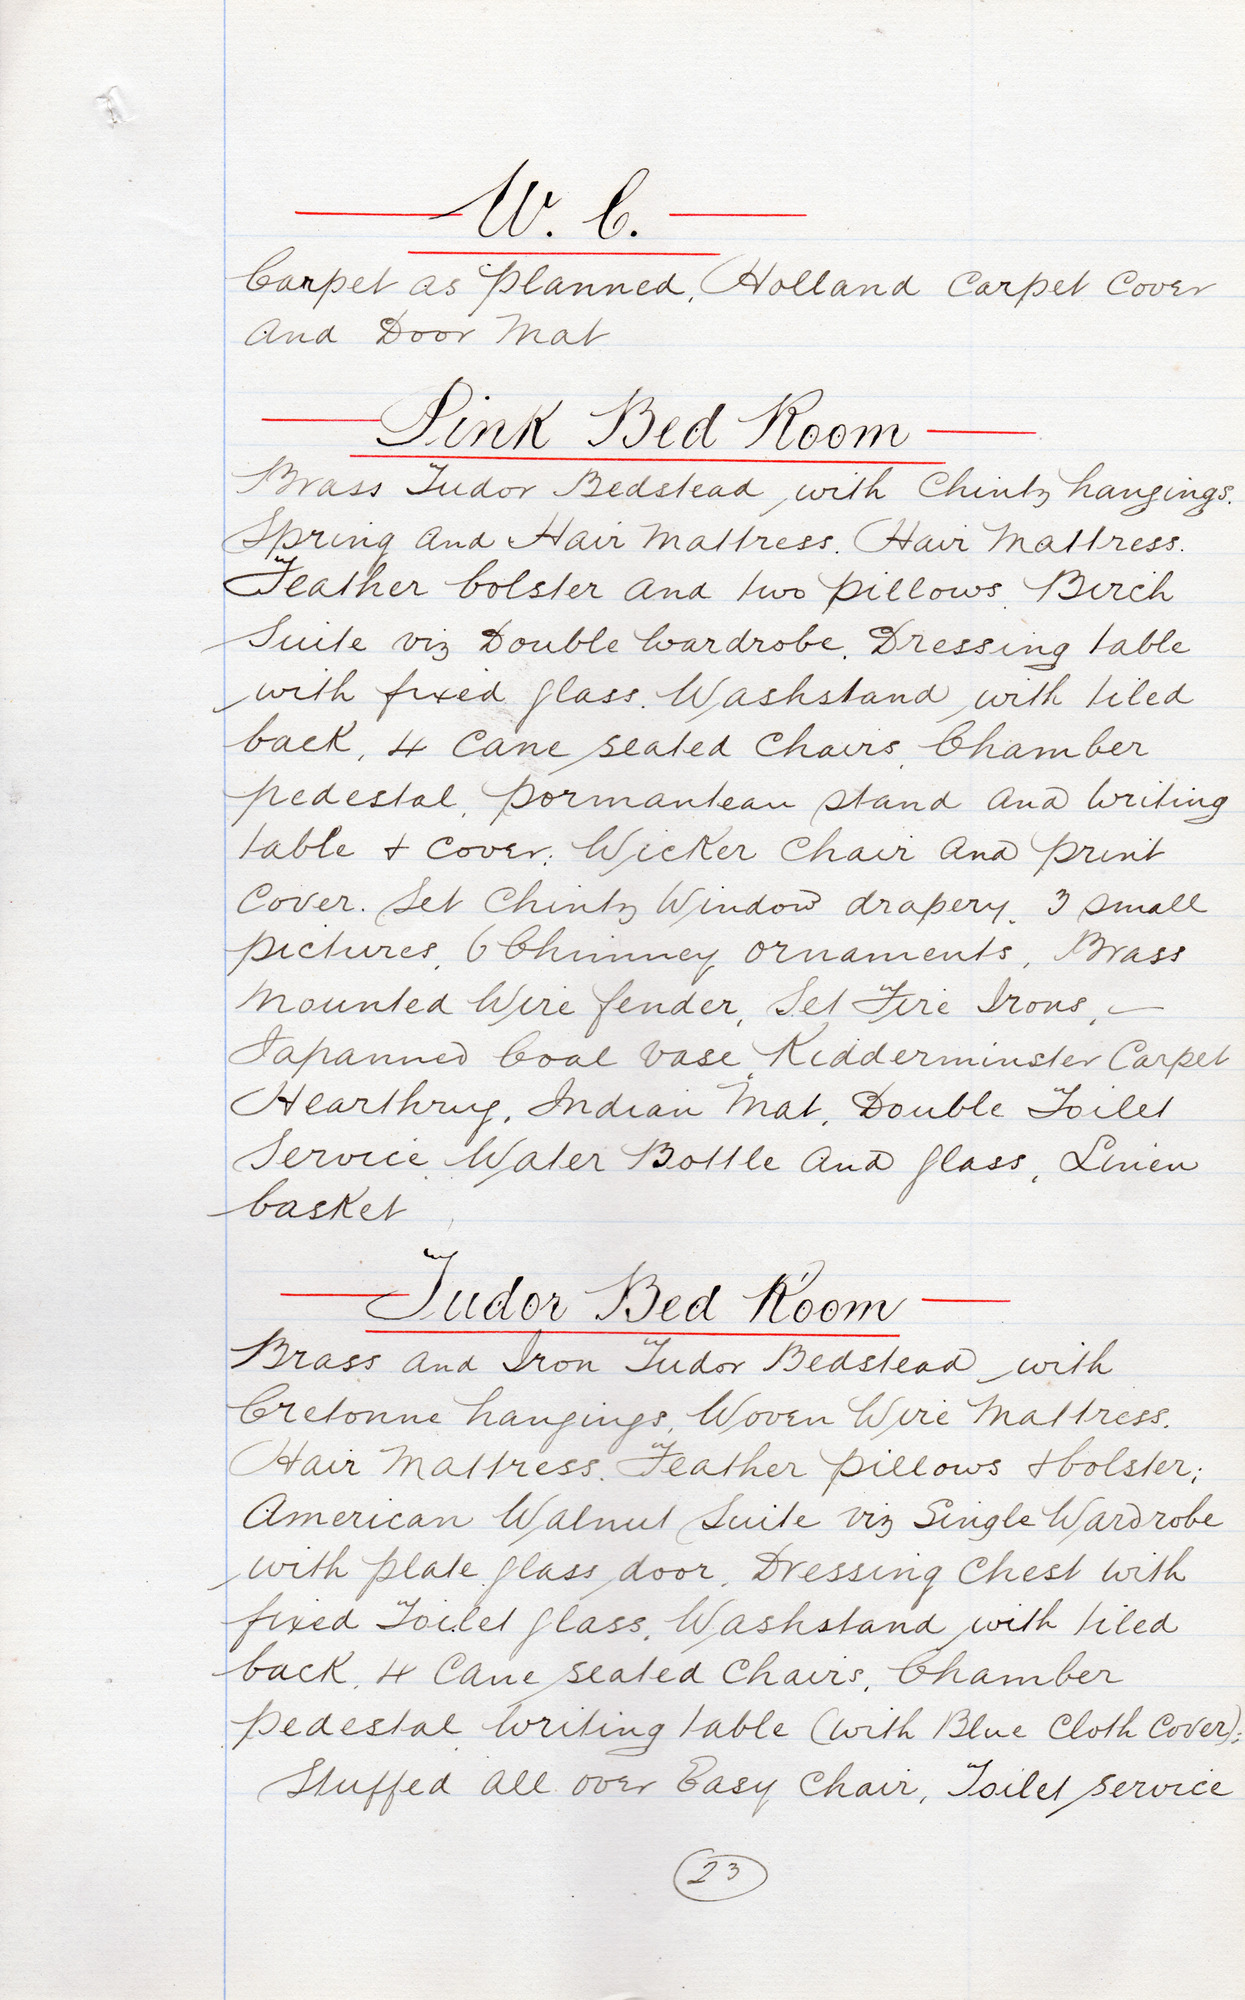 W. C.
Carpet as planned, Holland Carpet Cover
and Door Mat
Pink Bed Room
Brass Tudor Bedstead with Chintz hangings.
Spring and Hair Mattress. Hair Mattress.
Feather bolster and two pillows. Birch
Suite viz Double Wardrobe. Dressing table
with fixed glass. Washstand with tiled
back, 4 Cane seated Chairs, Chamber
pedestal, pormanteau stand and Writing
table & Cover; Wicker Chair and print
Cover. Set Chintz Window drapery. 3 small
pictures, 6 Chimney ornaments, Brass
Mounted Wire fender, Set Fire Irons, —
Japanned Coal Vase, Kidderminster Carpet
Hearthrug, Indian Mat, Double Toilet
Service, Water Bottle and glass, Linen
basket
Tudor Bed Room
Brass and Iron Tudor Bedstead with
Cretonne hangings, Woven Wire Mattress.
Hair Mattress. Feather pillows & bolster;
American Walnut Suite viz Single Wardrobe
with plate glass door, Dressing Chest with
fixed Toilet glass, Washstand with tiled
back, 4 Cane seated Chairs, Chamber
pedestal Writing table (with Blue Cloth Cover);
Stuffed all over Easy Chair, Toilet service
23